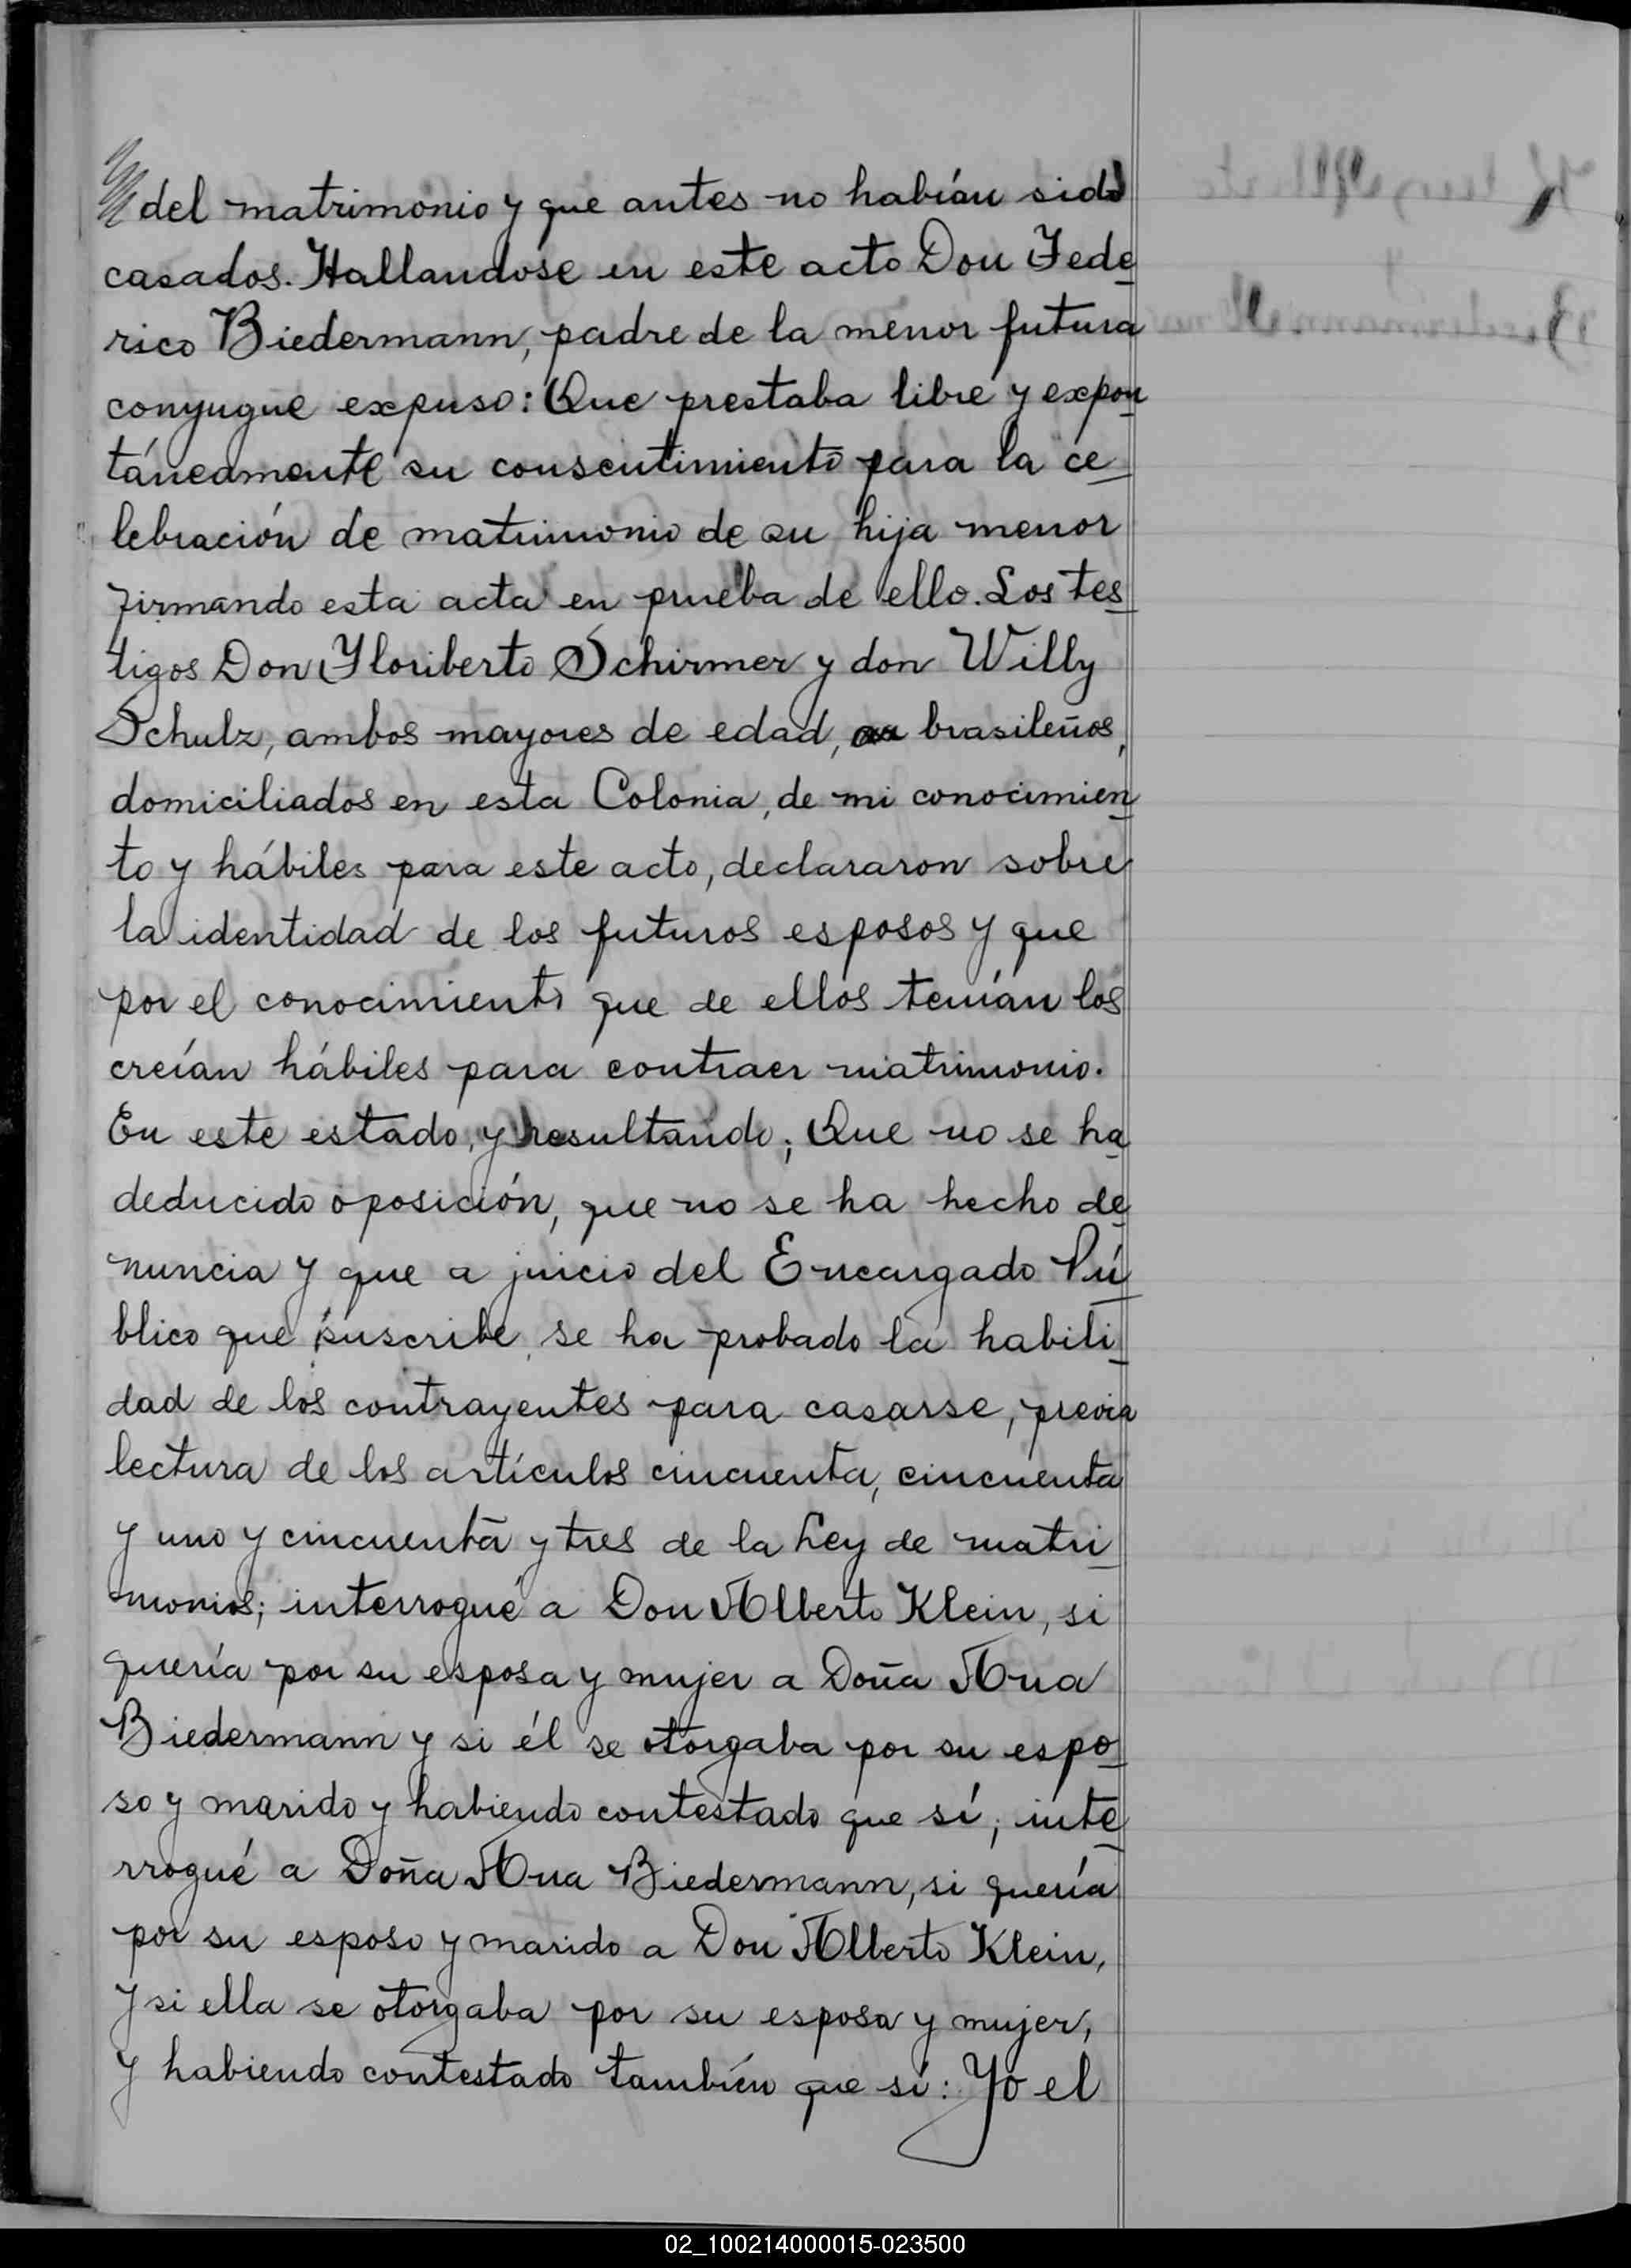 del matrimonio y que antes no habían sido
casados. Hallandose en este acto Don Fede
rico Biedermann, padre de la menor futura
conyugue expuso: Que prestaba libre y expon
táneamente su consentimiento para la ce
lebración de matrimonio de su hija menor
firmando esta acta en prueba de ello. Los tes
tigos Don Floriberto Schirmer y don Willy
Schulz, ambos mayores de edad, brasileños,
domiciliados en esta Colonia, de mi conocimien
to y hábiles para este acto, declararon sobre
la identidad de los futuros esposos y que
por el conocimiento que de ellos tenían los
creían hábiles para contraer matrimonio.
En este estado, y resultando; Que no se ha
deducido oposición, que no se ha hecho de
nuncia y que a juicio del Encargado Pú
blico que suscribe, se ha probado la habili
dad de los contrayentes para casarse, previa
lectura de los artículos cincuenta, cincuenta
y uno y cincuenta y tres de la Ley de matri
monios; interrogué a Don Alberto Klein, si
quería por su esposa y mujer a Doña Ana
Biedermann y si él se otorgaba por su espo
so y marido y habiendo contestado que sí; inte
rrogué a Doña Ana Biedermann, si quería
por su esposo y marido a Don Alberto Klein,
y si ella se otorgaba por su esposa y mujer,
y habiendo contestado también que sí: Yo el
02_100214000015-023500